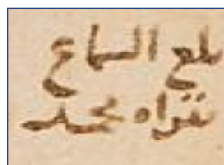 بلغ السماع
بقراه محمد